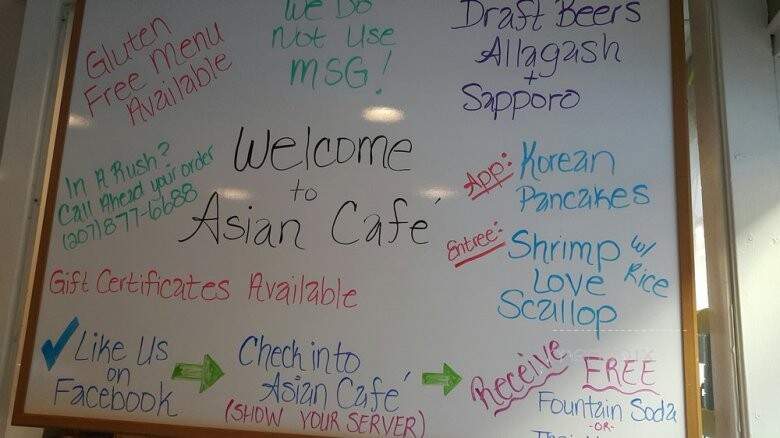 Gluten
Free Menu
Available
We Do
Not Use
MSG!
Draft Beers
Allagash
+
Sapporo
In A Rush?
Call Ahead your order
(207)877-6688
Welcome
to
Asian Café
App: Korean
Pancakes
Entree: Shrimp w/
Love Rice
Scallop
Gift Certificates Available
Like Us
on
Facebook
Check into
Asian Café
(SHOW YOUR SERVER)
Receive FREE
Fountain Soda
-OR-